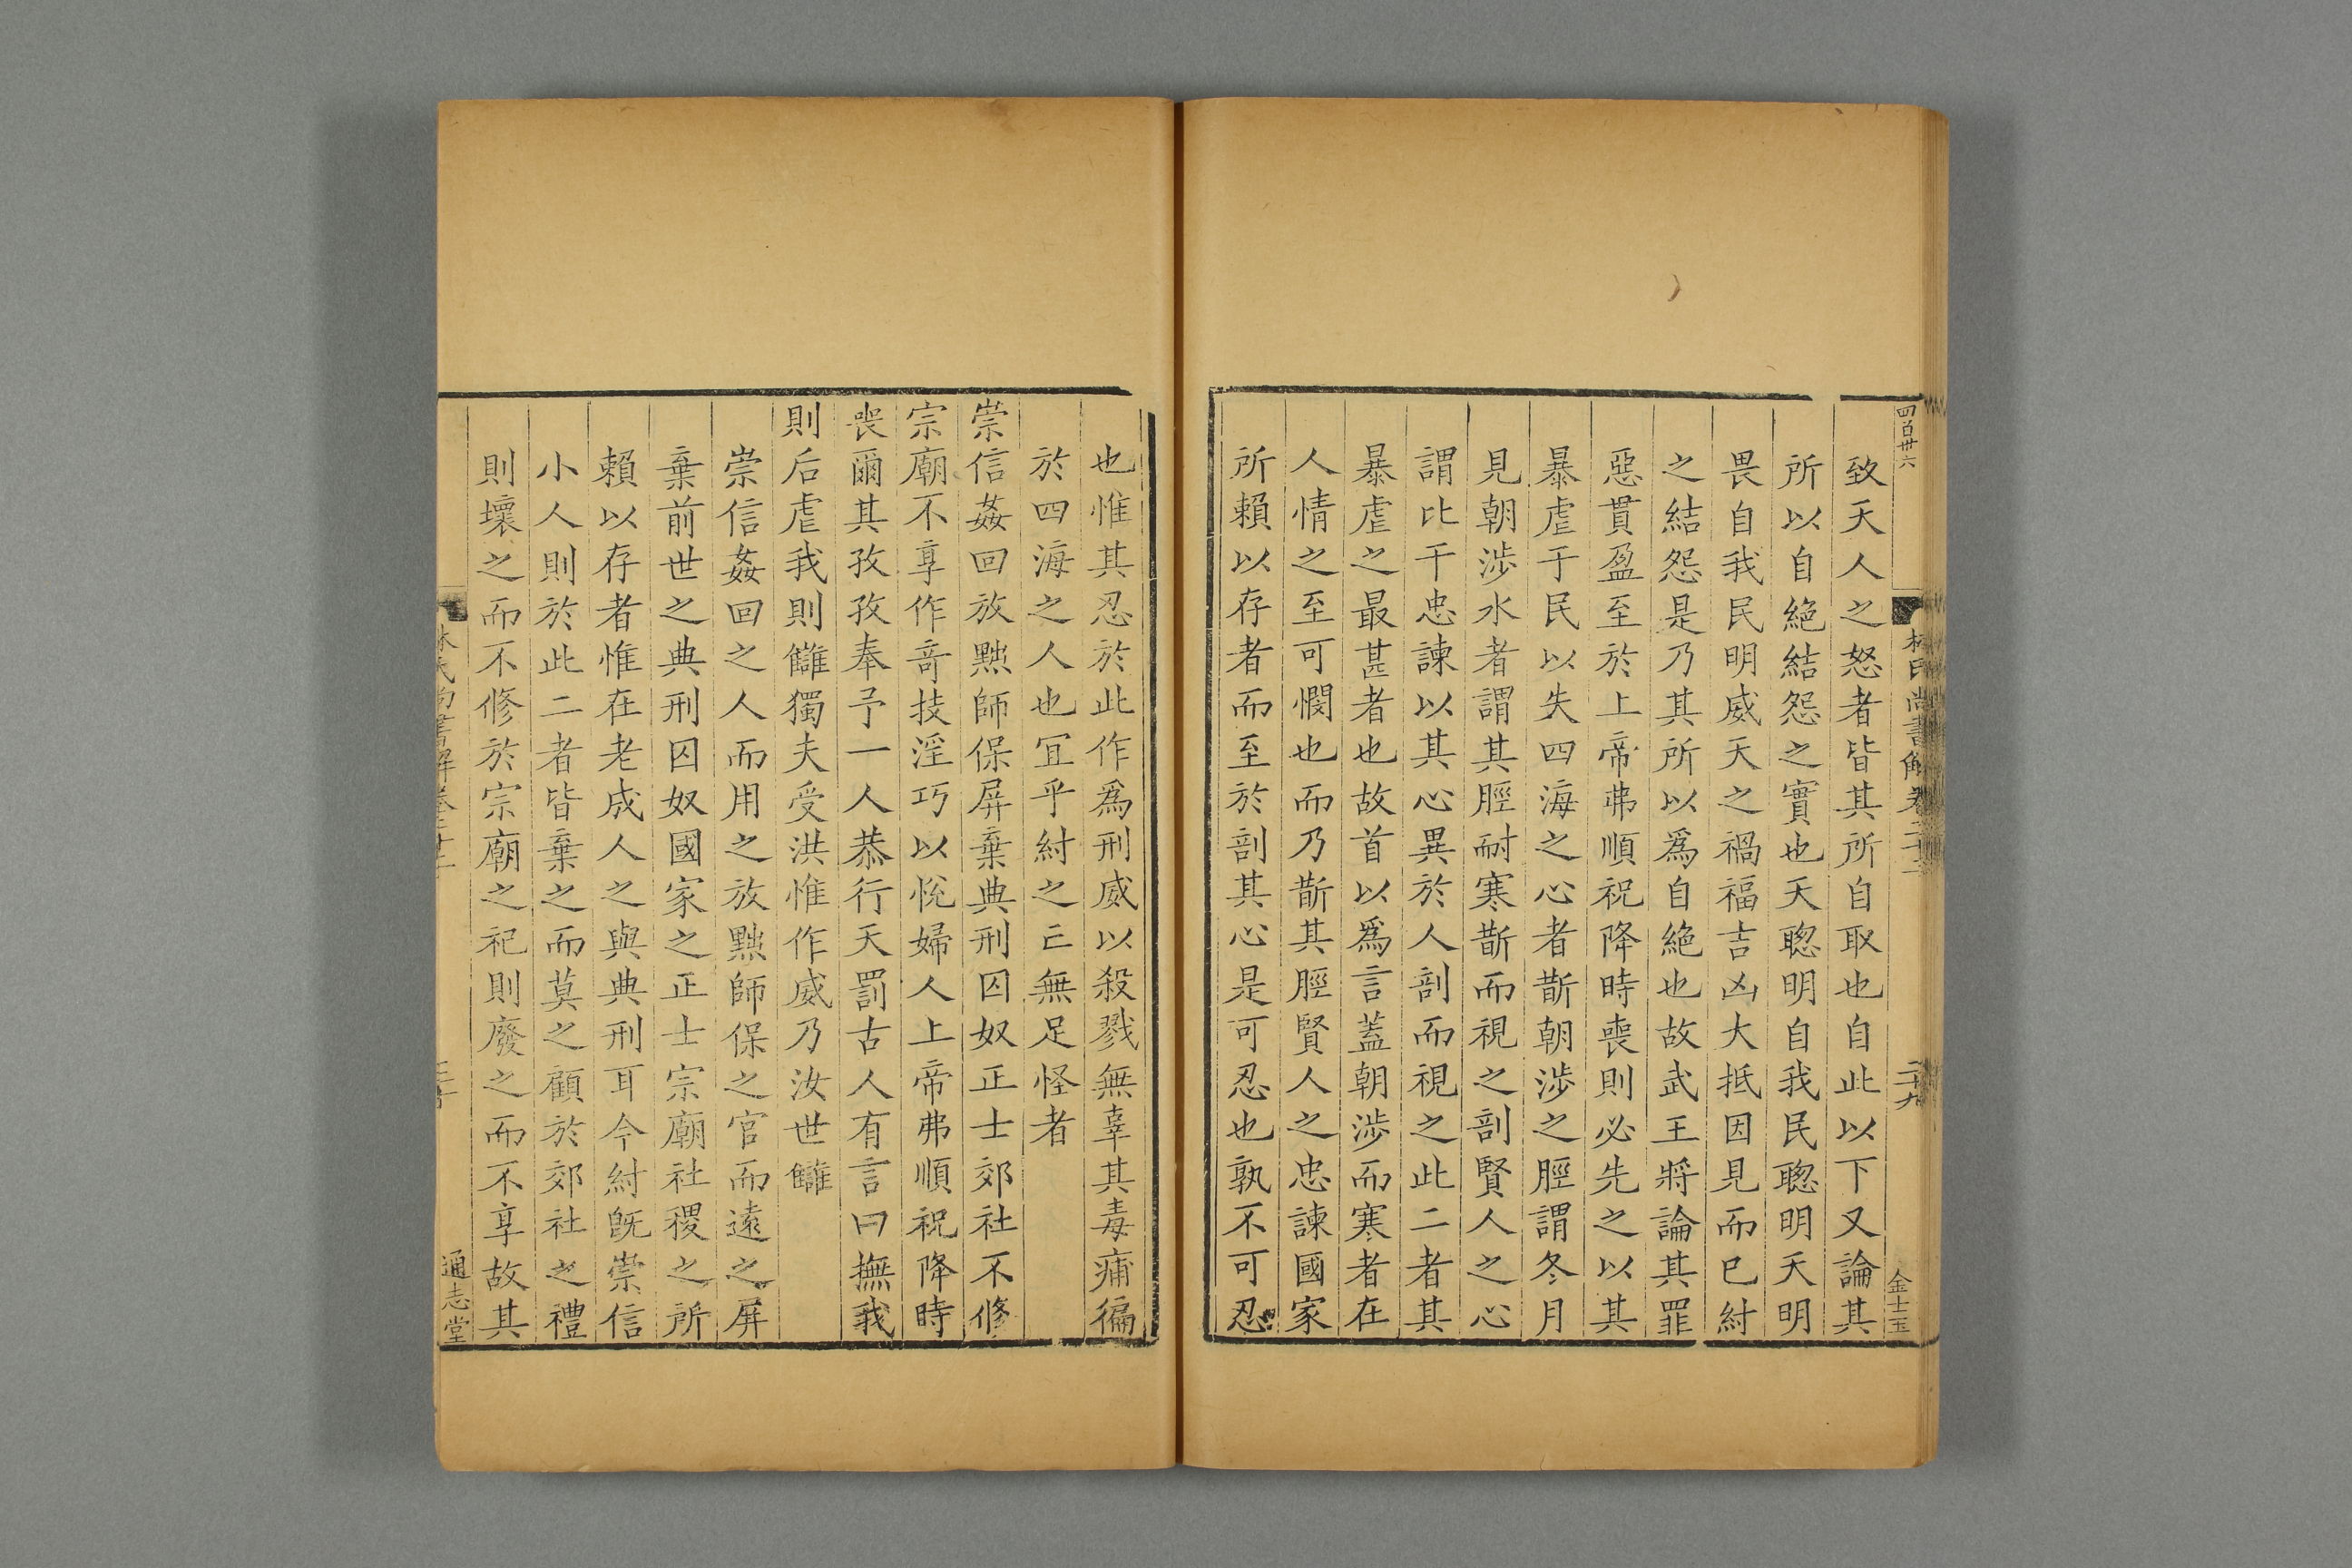 四百卅六
林氏尚書解卷二十二
二十九
金士玉
致天人之怒者皆其所自取也自此以下又論其
所以自絶結怨之實也天聦明自我民聦明天明
畏自我民明威天之禍福吉凶大抵因見而已紂
之結怨是乃其所以爲自絶也故武王將論其罪
惡貫盈至於上帝弗順祝降時喪則必先之以其
暴虐于民以失四海之心者斮朝涉之脛謂冬月
見朝涉水者謂其脛耐寒斮而視之剖賢人之心
謂比干忠諫以其心異於人剖而視之此二者其
暴虐之最甚者也故首以爲言蓋朝涉而寒者在
人情之至可憫也而乃斮其脛賢人之忠諫國家
所賴以存者而至於剖其心是可忍也孰不可忍
也惟其忍於此作爲刑威以殺戮無辜其毒痡徧
於四海之人也冝乎紂之亡無足怪者
崇信姦回放黜師保屏棄典刑囚奴正士郊社不修
宗廟不享作竒技淫巧以悅婦人上帝弗順祝降時
喪爾其孜孜奉予一人恭行天罰古人有言曰撫我
則后虐我則讎獨夫受洪惟作威乃汝世讎
崇信姦回之人而用之放黜師保之官而遠之屏
棄前世之典刑囚奴國家之正士宗廟社稷之所
賴以存者惟在老成人之與典刑耳今紂旣崇信
小人則於此二者皆棄之而莫之顧於郊社之禮
則壞之而不修於宗廟之祀則廢之而不享故其
林氏尚書解卷二十二
通志堂